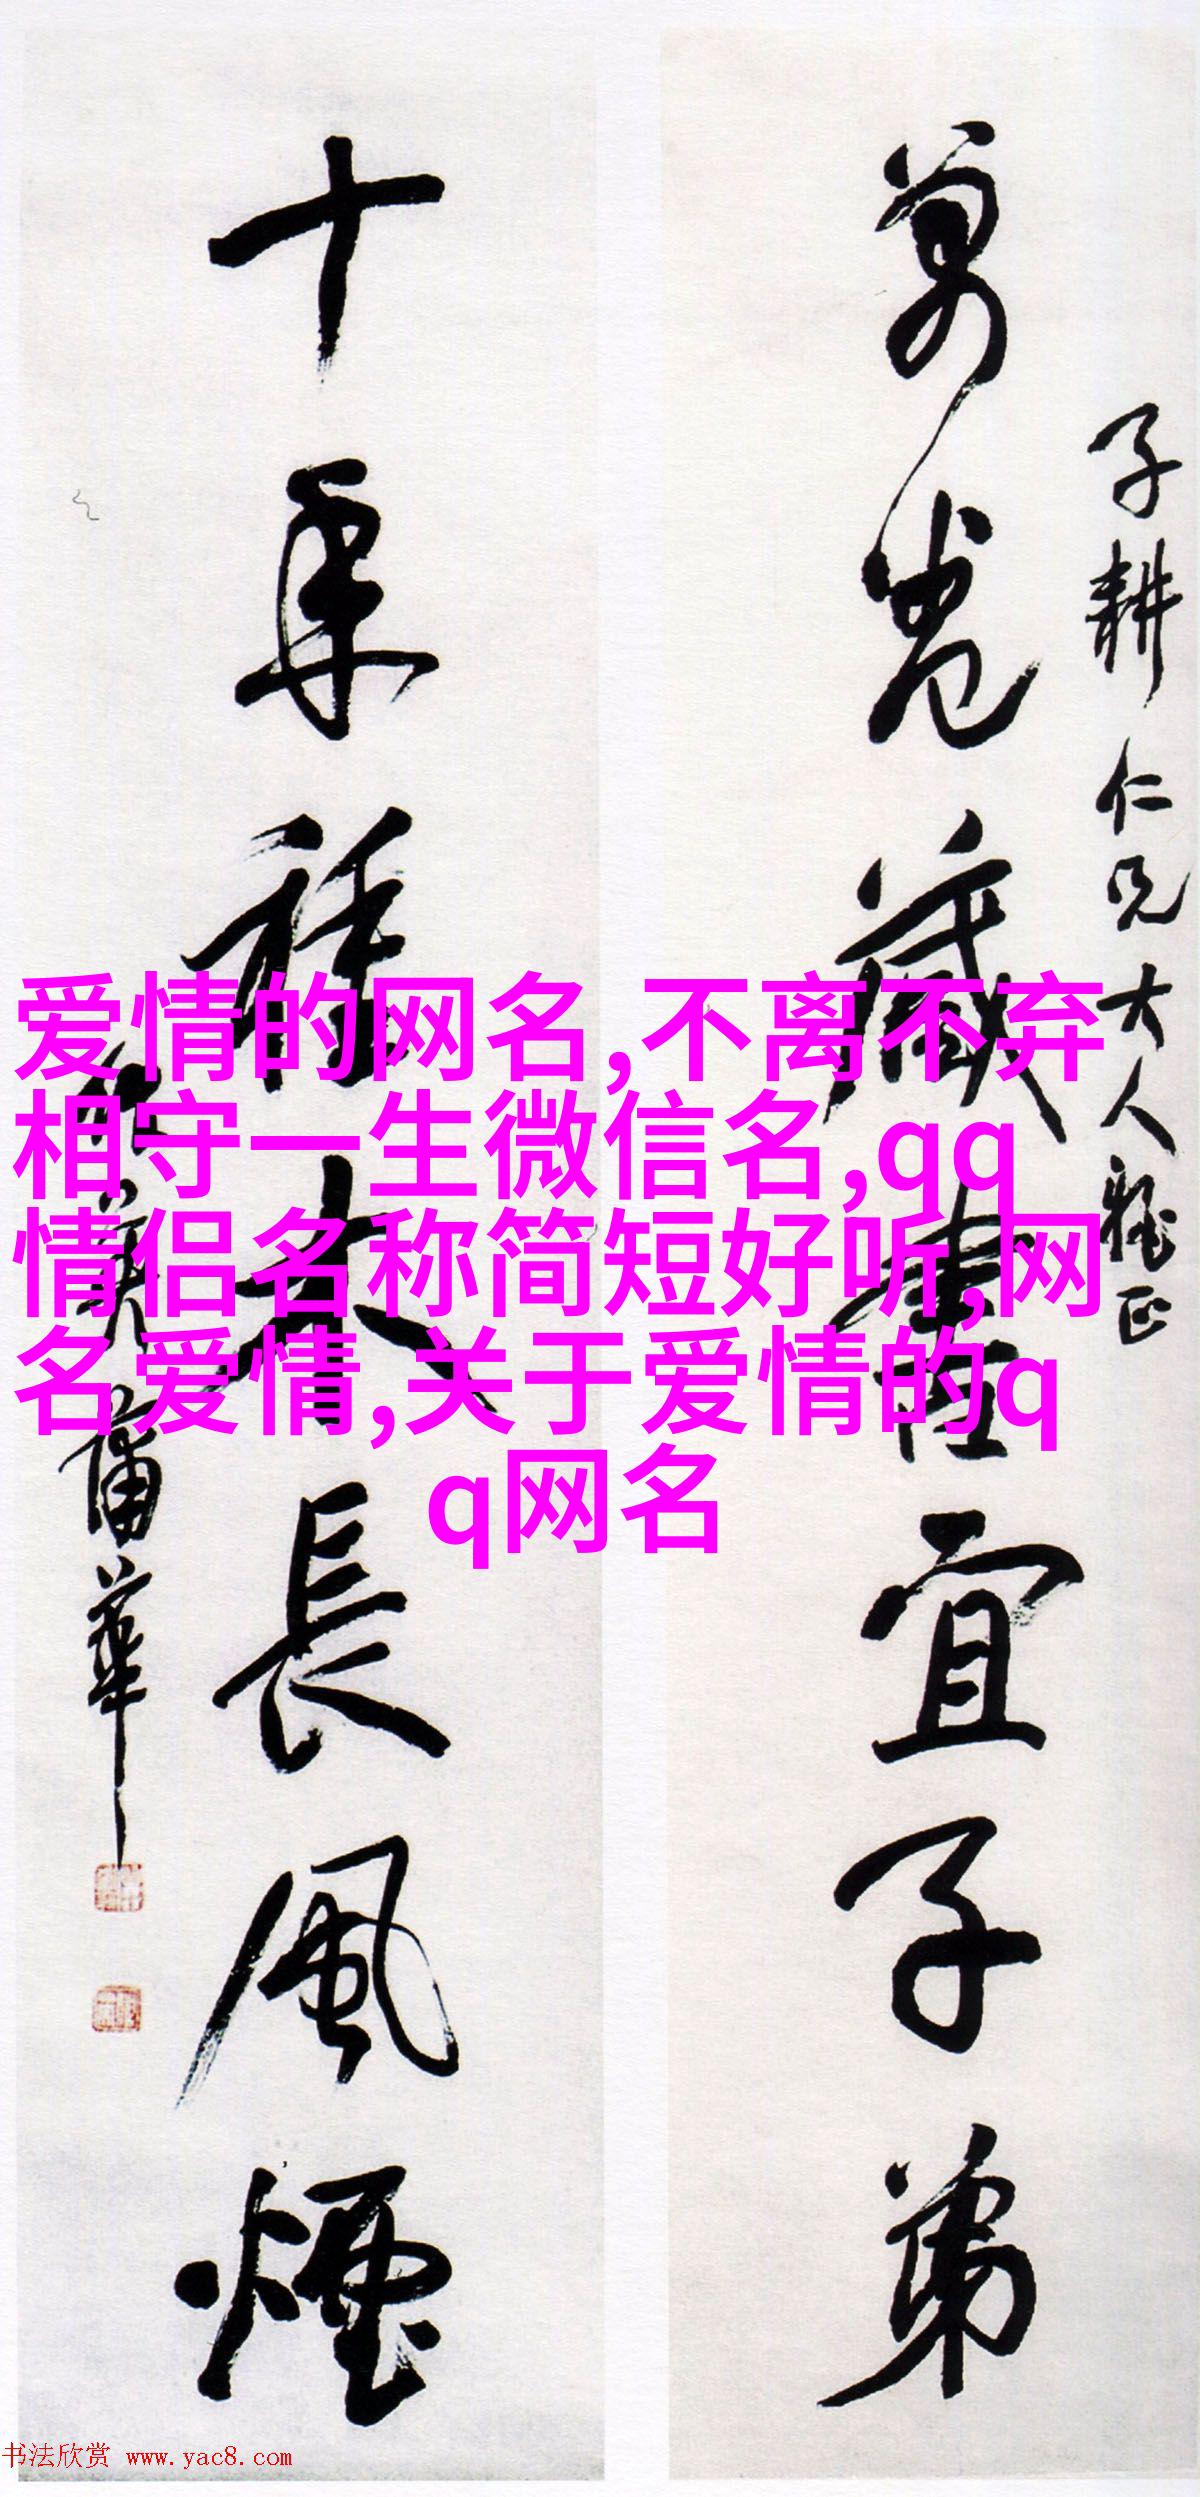 子耕仁兄大人雅正
萬卷藏書宜子弟
十年種木長風煙
作英蒲華
爱情的网名,不离不弃
相守一生微信名,qq
情侣名称简短好听,网
名爱情,关于爱情的q
q网名
书法欣赏 www.yac8.com